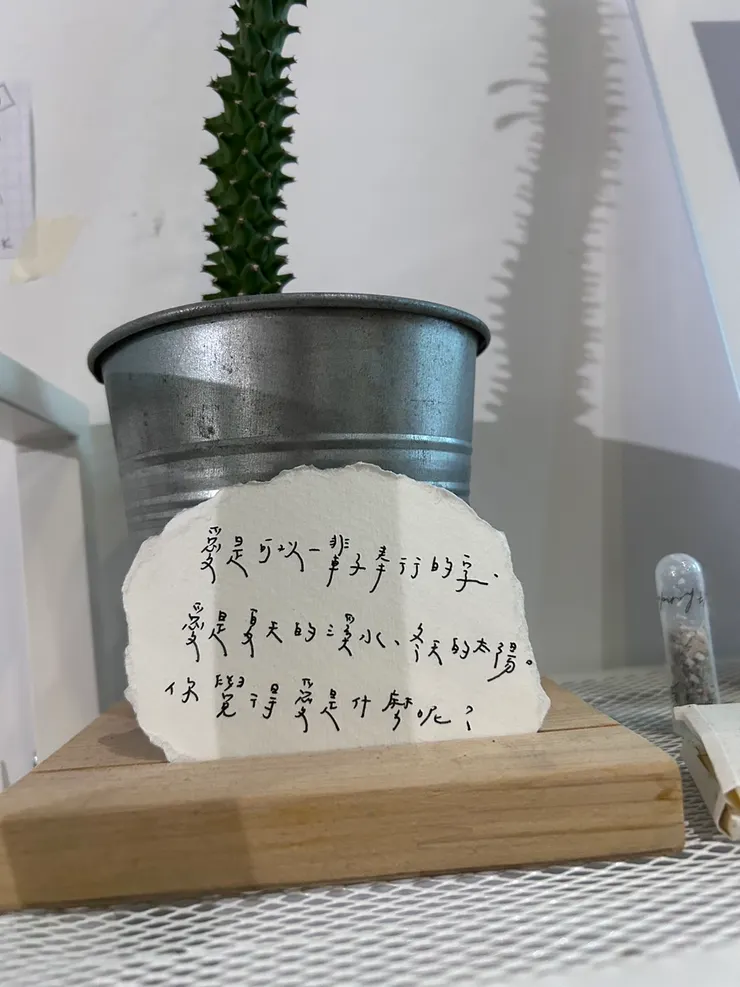 愛是可以一輩子奉行的字.
愛是夏天的溪水、冬天的太陽。
你覺得愛是什麼呢?